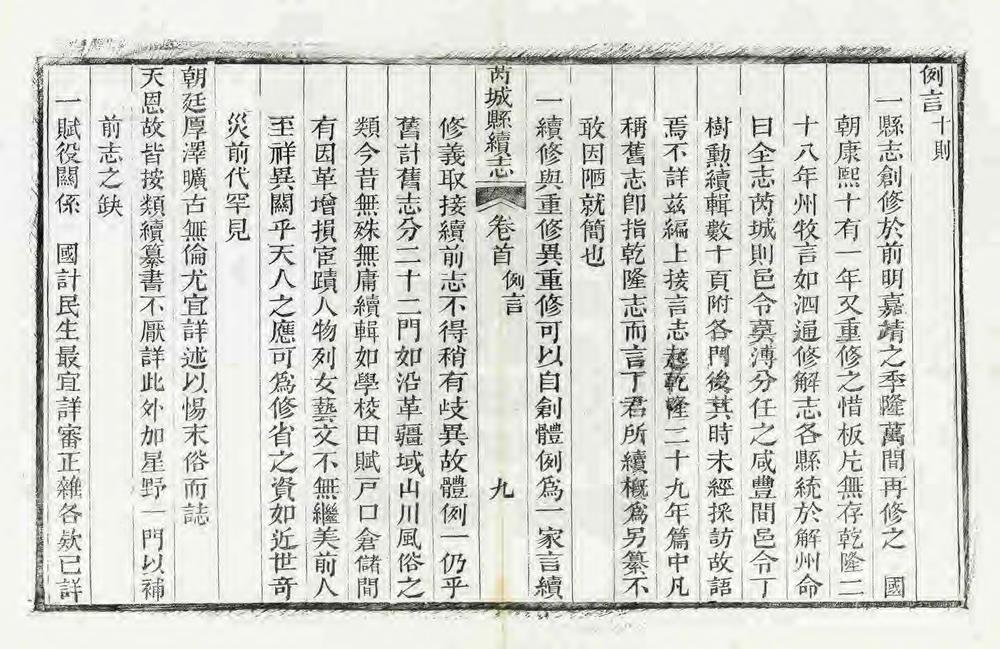 例言十則
一縣志創修於前明嘉靖之季隆萬間再修之　國
朝康熙十有一年又重修之惜板片無存乾隆二
十八年州牧言如泗通修解志各縣統於解州命
曰全志芮城則邑令莫溥分任之咸豐間邑令丁
樹勳續輯數十頁附各門後其時未經採訪故語
焉不詳茲編上接言志起乾隆二十九年篇中凡
稱舊志卽指乾隆志而言丁君所續槪爲另纂不
敢因陋就簡也
一續修與重修異重修可以自創體例爲一家言續
芮城縣續志　卷首　例言　九
修義取接續前志不得稍有歧異故體例一仍乎
舊計舊志分二十二門如沿革疆域山川風俗之
類今昔無殊無庸續輯如學校田賦戸口倉儲間
有因革增損宦蹟人物列女藝文不無繼美前人
至祥異關乎天人之應可爲修省之資如近世奇
災前代罕見
朝廷厚澤曠古無倫尤宜詳述以惕末俗而誌
天恩故皆按類續纂書不厭詳此外加星野一門以補
前志之缺
一賦役關係　國計民生最宜詳審正雜各欵已詳